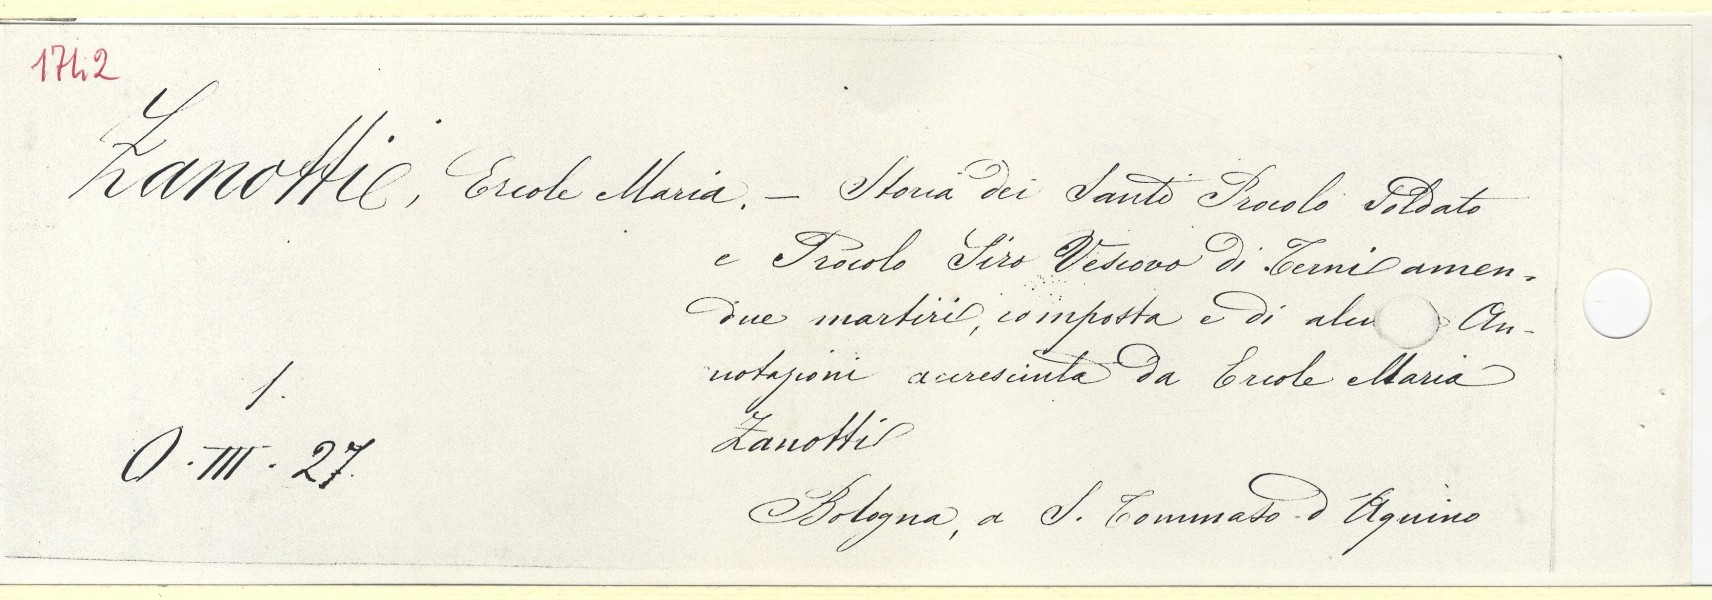 1742
Zanotti, Ercole Maria. — Storia dei Santi Procolo Soldato
e Procolo Siro Vescovo di Terni amen-
due martiri, composta e di alcu An-
notazioni accresciuta da Ercole Maria
Zanotti
Bologna, a S. Tommaso d'Aquino
1.
O. III. 27.